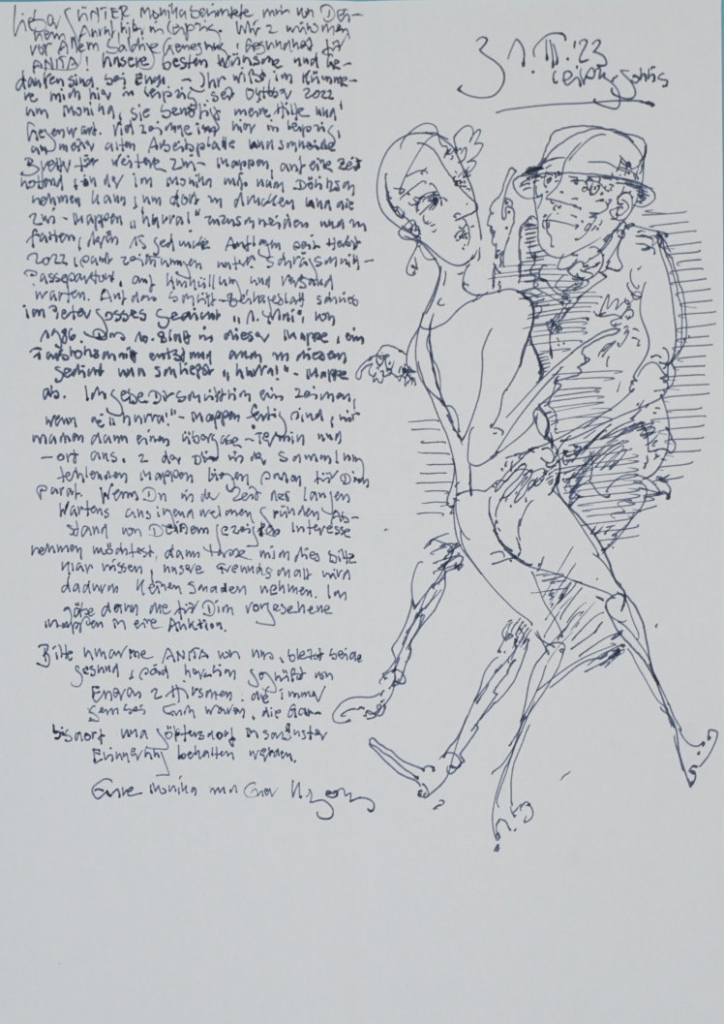 31.III.'23
Lieber GÜNTER Monika berichtete mir von Dei-
nem Anruf hier in Leipzig. Wir 2 wünschen
vor Allem baldige Genesung, Gesundheit für
ANITA! Unsere besten Wünsche und Ge-
danken sind bei Euch – Ihr wißt, ich kümme-
re mich hier in Leipzig seit Oktober 2022
um Monika, sie benötigt meine Hilfe und
Gegenwart. Viel zeichne ich hier in Leipzig,
an meiner alten Arbeitsplatte und schneide
Bretter für weitere Mappen, auf eine Zeit
hoffend, in der ich Monika mit nach Dölitzsch
nehmen kann, um dort zu drucken und die
Mappen "hurra!" zuzuschneiden und zu
falten, deren 15 gedruckte Auflagen seit Herbst
2022, samt Zeichnungen unter Schrägschnitt-
Passepartout, auf Umhüllung und Versand
warten. Auf dem Beilageblatt schrieb
ich Peter Gosses Gedicht "1. Mai", von
1986. Das 10. Blatt in dieser Mappe, ein
Farbholzschnitt entstand auch zu diesem
Gedicht und schließt "hurra!"-Mappe
ab. Ich gebe Dir ein Zeichen,
wenn die "hurra!"-Mappen fertig sind, wir
machen dann einen Übergabe-Termin und
-ort aus. 2 der Dir in der Sammlung
fehlenden Mappen liegen schon für Dich
parat. Wenn Du in der Zeit des langen
Wartens aus irgend welchen Gründen Ab-
stand von Deinem gezeigten Interesse
nehmen möchtest, dann lasse mich dies bitte
klar wissen, unsere Freundschaft wird
dadurch keinen Schaden nehmen. Ich
gäbe dann die für Dich vorgesehene
Mappen in eine Auktion.
Bitte umarme ANITA von uns, bleibt beide
gesund, seid herzlich gegrüßt von
Eueren 2 die immer
gern bei Euch waren, die
und in schönster
Erinnerung behalten werden.
Eure Monika und Euer